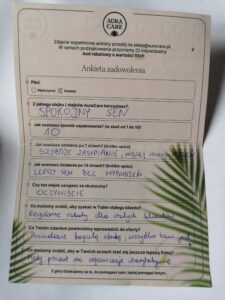 AURA
CARE
Zdjęcie wypełnionej ankiety prześlij na sklep@auracare.pl
W ramach podziękowania przyznamy Ci indywidualny
kod rabatowy o wartości
Ankieta zadowolenia
Płeć
Mężczyzna Kobieta
Z jakiego olejku / olejków AuraCare korzystasz?
SPOKOJNY SEN
Jak oceniasz sposób zapakowania? (w skali od 1 do 10)
10
Jak oceniasz działanie po 7 dniach? (krótko opisz)
SZYBSZE ZASYPIANIE, MNIEJ
Jak oceniasz działanie po 14 dniach? (krótko opisz)
LEPSZY SEN BEZ WYBUDZEŃ
Czy ten olejek uznajesz za skuteczny?
OCZYWIŚCIE
Co możemy zrobić, aby zyskać w Tobie stałego klienta?
Regularne rabaty dla stałych klientów
Co Twoim zdaniem powinniśmy wprowadzić do oferty?
Posiadacie bogatą ofertę, wszystko
Co możemy zrobić, aby w Twoich oczach stać się jeszcze lepszą firmą?
Z góry dziękujemy za to, że pomagasz nam, lepiej pomagać innym.